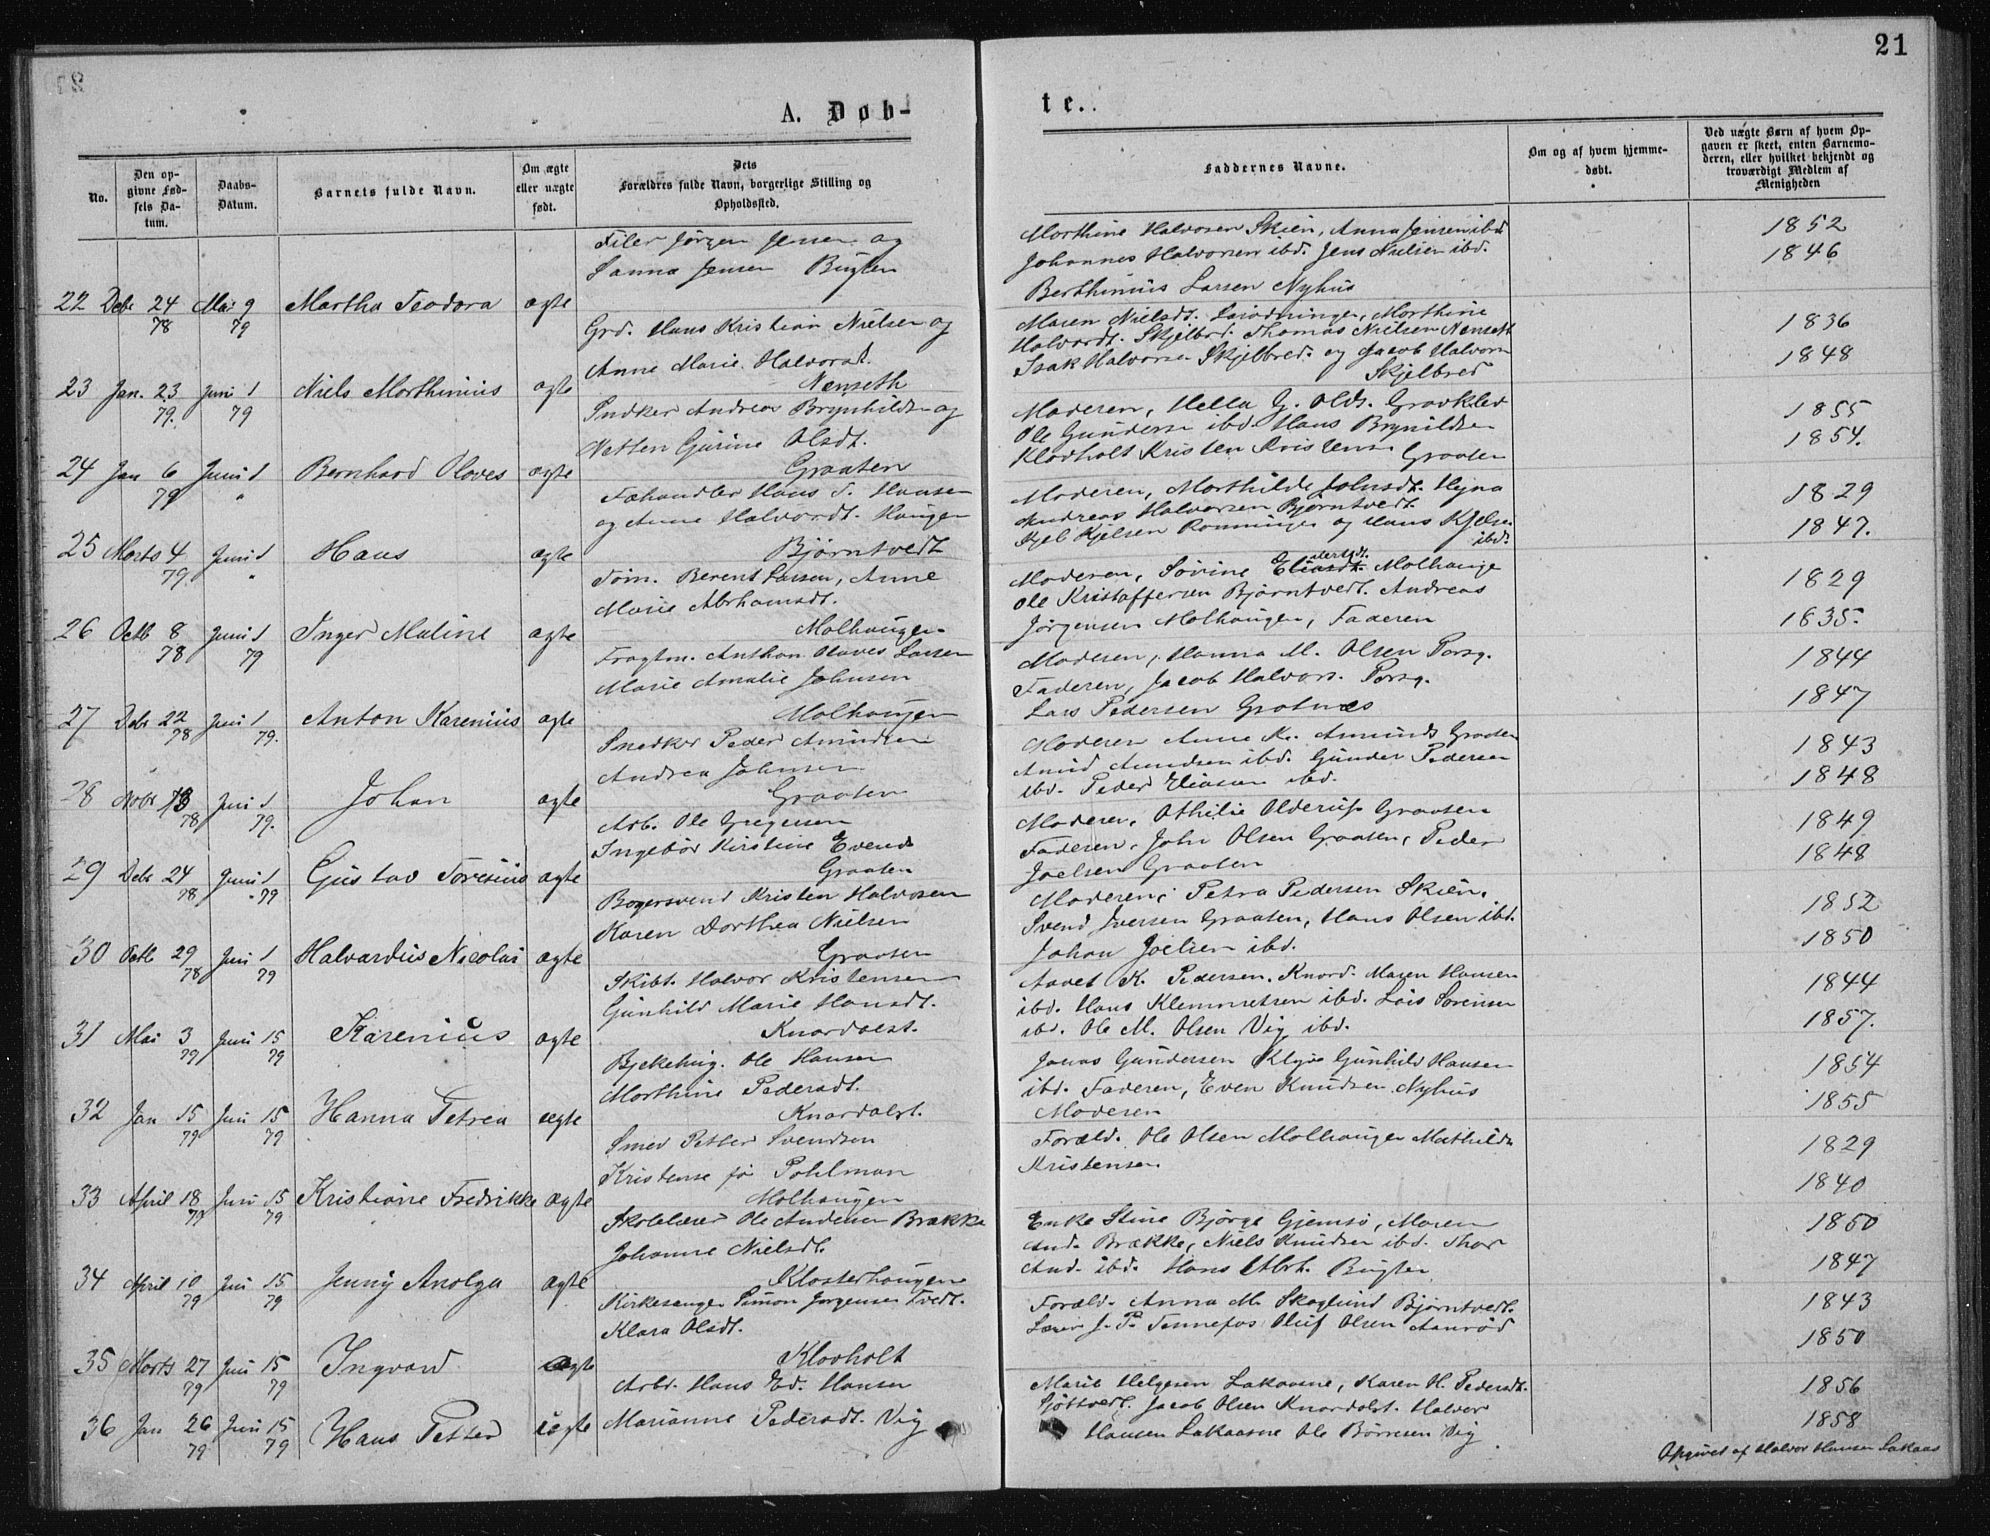 21
A. Døb-
te.
No.
Den opgivne Fødsels Datum.
Daabs-Datum.
Barnets fulde Navn.
Om ægte eller uægte født.
Dets Forældres fulde Navn, borgerlige Stilling og Opholdssted.
Faddernes Navne.
Om og af hvem hjemmedøbt.
Ved uægte Børn af hvem Opgaven er skeet, enten Barnemoderen, eller hvilket bekjendt og troværdigt Medlem af Menigheden
22 Debr 24 78 Mai 9 79 Martha Teodora ægte
Filer Jørgen Jensen og
Sanna Jensen Bugten
Morthine Halvorsen Skien, Anna Jensen ibd.
Johannes Halvorsen ibd. Jens Nielsen ibd.
Berthinius Larsen Nyhus
1852
1846
23 Jan. 23 79. Juni 1 79 Niels Morthinius ægte
Grd. Hans Kristian Nielsen og
Anne Marie Halvorsd.
Nenseth
Maren Nielsdt. Morthine
Halvordt. Skjelbred. Thomas Nielsen Nenseth
Isak Halvorsen Skjelbred. og Jacob Halvorn
Skjelbred
1836
1848
24 Jan 6 79 Juni 1 " Bernhard Olaves ægte
Snedker Andreas Brynhildsen og
Netten Gurine Olsdt.
Graaten
Moderen, Hella G. Olds. Gravklev
Ole Gundersen ibd. Hans Brynildsen
Klovholt Kristen Kristens. Graaten
1855
1854.
25 Morts 4 79. Juni 1 " Hans ægte
Fæhandler Hans T. Hansen
og Anne Halvordt. Haugen
Bjørntvedt
Moderen, Morthilde Johnsdt. Hejna
Andreas Halvorsen Bjørntvedt
Kjel Kjelsen Rønningen og Hans Kjelsen
ibd.
1829
1847.
26 Octb 8 78 Juni 1 79 Inger Maline ægte
Tøm. Berent Larsen, Anne
Marie Abrhamsdt.
Molhaugen
Moderen, Sørine Molhauge
Ole Kristoffersen Bjørntvedt. Andreas
Jørgensen Molhaugen, Faderen
1829
1835.
27 Debr 22 78 Juni 1 79. Anton Karenius ægte
Fragtm. Anthon Olaves Larsen
Marie Amalie Johnsen
Molhaugen
Moderen, Hanna M. Olsen Porsg.
Faderen, Jacob Halvors. Porsg.
Lars Pedersen Grotnæs
1844
1847
28 Nobr 13 78 Juni 1 79. Johan ægte
Snedker Peder Amundsen
Andrea Johnsen
Graaten
Moderen Anne K. Amunds Graaten
Amund Amundsen ibd. Gunder Pedersen
ibd. Peder Eliasen ibd.
1843
1848
29 Debr 24 78 Juni 1 79 Gustav Toresius ægte
Arb. Ole Gregersen
Ingebør Kirstine Evends
Graaten
Moderen. Othilie Olderups Graaten
Faderen. John Olsen Graaten, Peder
Joelsen Graaten
1849
1848
30 Octb 29 78 Juni 1 79 Halvardius Nicolai ægte
Bøgersvend Kristen Halvorsen
Karen Dorthea Nielsen
Graaten
Moderen, Petra Pedersen Skien.
Svend Iversen Graaten, Hans Olsen ibd.
Johan Joelsen ibd.
1852
1850
31 Mai 3 79 Juni 15 79 Karenius ægte
Skibt. Halvor Kristensen
Gunhild Marie Hansdt.
Knardalst.
Aavet K. Pedersen. Knard. Maren Hansen
ibd. Hans Klemmetsen ibd. Lars Sørensen
ibd. Ole M. Olsen Vig ibd.
1844
1857.
32 Jan 15 79 Juni 15 79 Hanna Petrea ægte
Bjekehug. Ole Hansen
Morthine Pedersdt.
Knardalst.
Jonas Gundersen Klyve Gunhild Hansen
ibd. Faderen, Even Knudsen Nyhus
Moderen
1854
1855
33 April 18 79 Juni 15 79 Kristiane Fredrikke ægte
Smed Petter Svendsen
Kristense fø Pohlman
Molhaugen
Foræld. Ole Olsen Molhaugen Mathilde
Kristensen
1829
1840
34 April 10 79 Juni 15 79 Jenny Anolga ægte
Skolelærer Ole Andersen Brække
Johanne Nielsdt.
Klosterhaugen
Enke Stine Bjørge Gjemsø, Maren
And. Brække, Niels Knudsen ibd. Thor
And. ibd. Hans Abrh. Bugten
1850
1847
35 Morts 27 79 Juni 15 79 Ingvard ægte
Kirkesanger Simon Jørgensen Tvedt.
Klara Olsdt.
Klovholt
Foræld. Anna M. Skoglund Bjørntvedt.
Lærer J. P. Tennefos Oluf Olsen Aanrød
1843
1850
36 Jan 26 79 Juni 15 79 Hans Petter uægte
Arbr. Hans Ed. Hansen
Marianne Pedersdt. Vig
Marie Helgesen Lakaasne, Karen H. Pedersdt.
Gjøttvedt. Jacob Olsen Knardalst. Halvor
Hansen Lakaasne Ole Børresen Vig
1856
1858
Opgivet af Halvor Hansen Lakaas